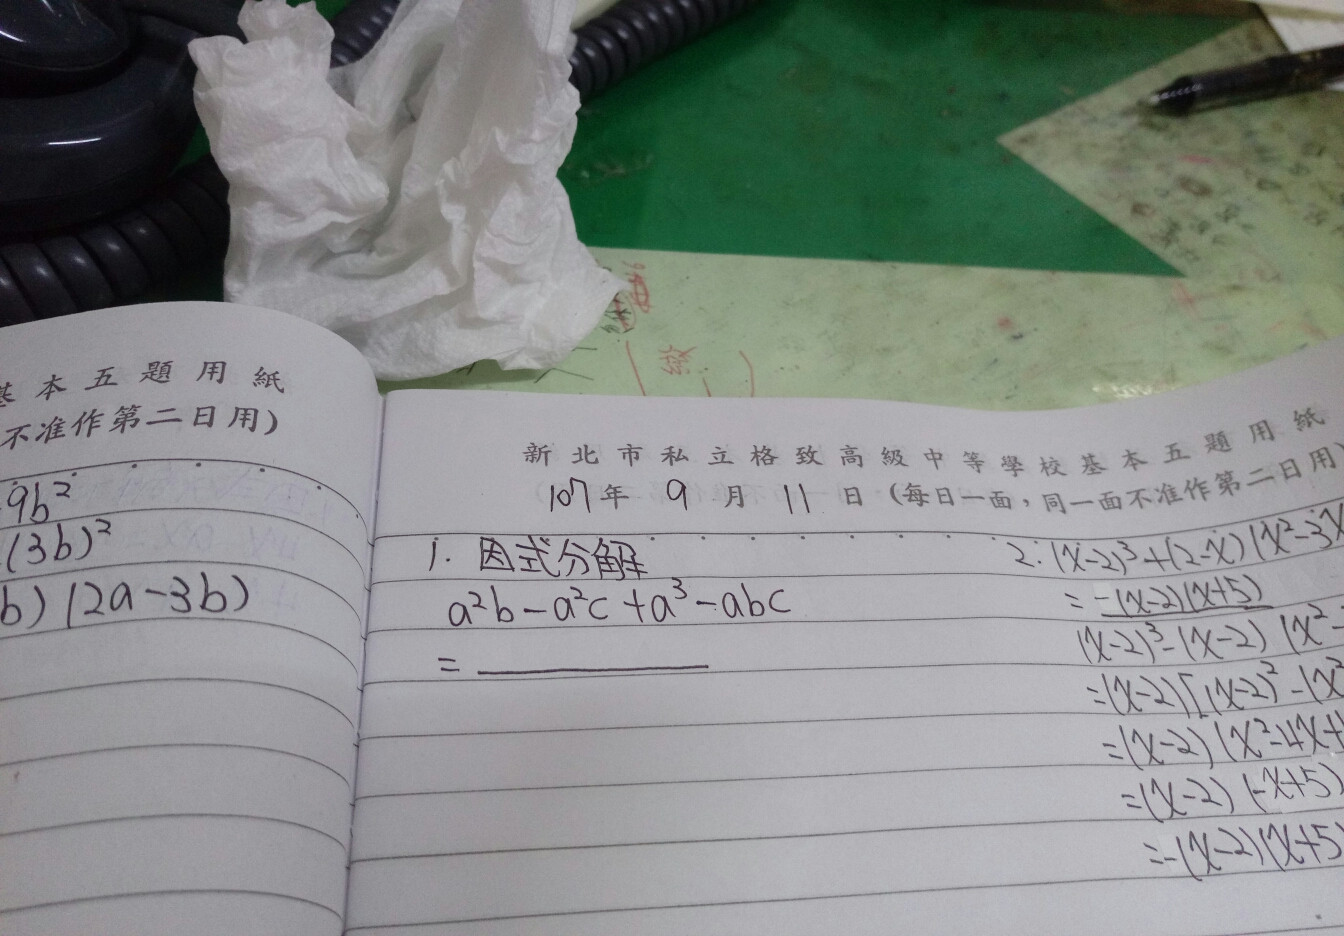 基本五題用紙
不准作第二日用)
9b²
(3b)²
b)(2a-3b)
新北市私立格致高級中等學校基本五題用紙
107年 9 月 11 日 (每日一面，同一面不准作第二日用)
1. 因式分解
a²b-a²c+a³-abc
=
2. (x-2)³+(2-x)(x²-3x
=-(x-2)(x+5)
(x-2)³-(x-2)(x²-
=(x-2)[(x-2)²-(x²
=(x-2)(x²-4x+
=(x-2)(-x+5)
=-(x-2)(x+5)